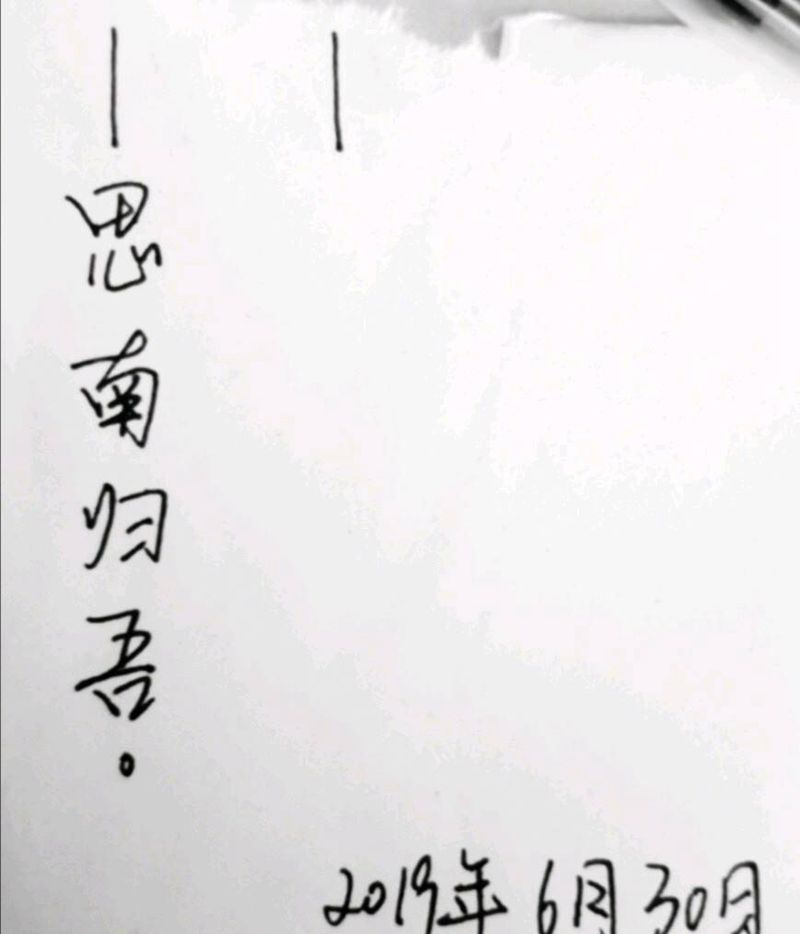 —思南归吾.
2019年6月30日